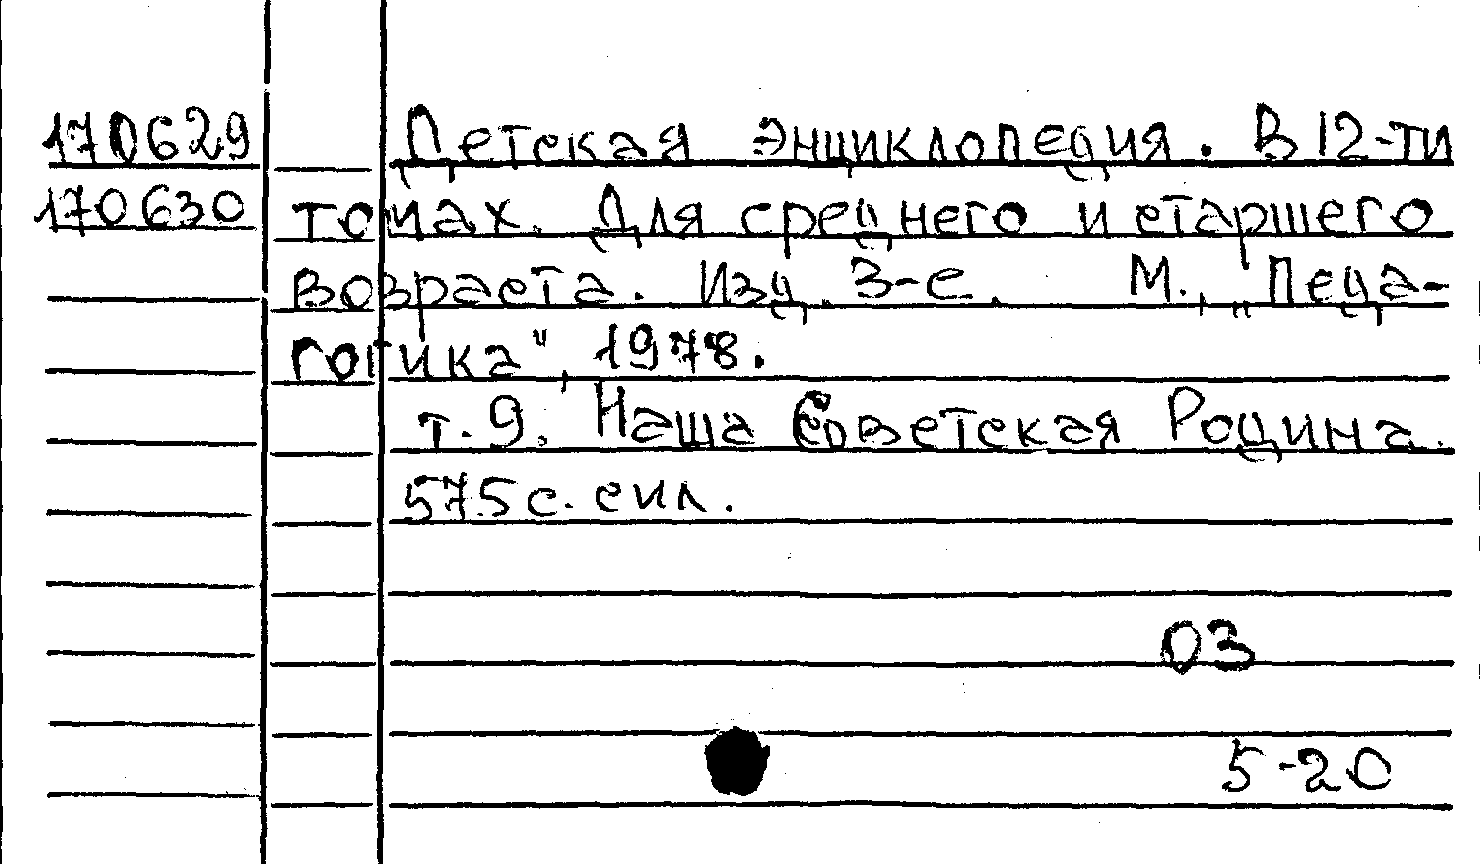 170629 Детская энциклопедия. В 12-ти
170630 томах. Для среднего и старшего
возраста. Изд. 3-е. М., „Педа-
гогика", 1978.
т. 9. Наша Советская Родина.
575 с. с ил.
03
5-20